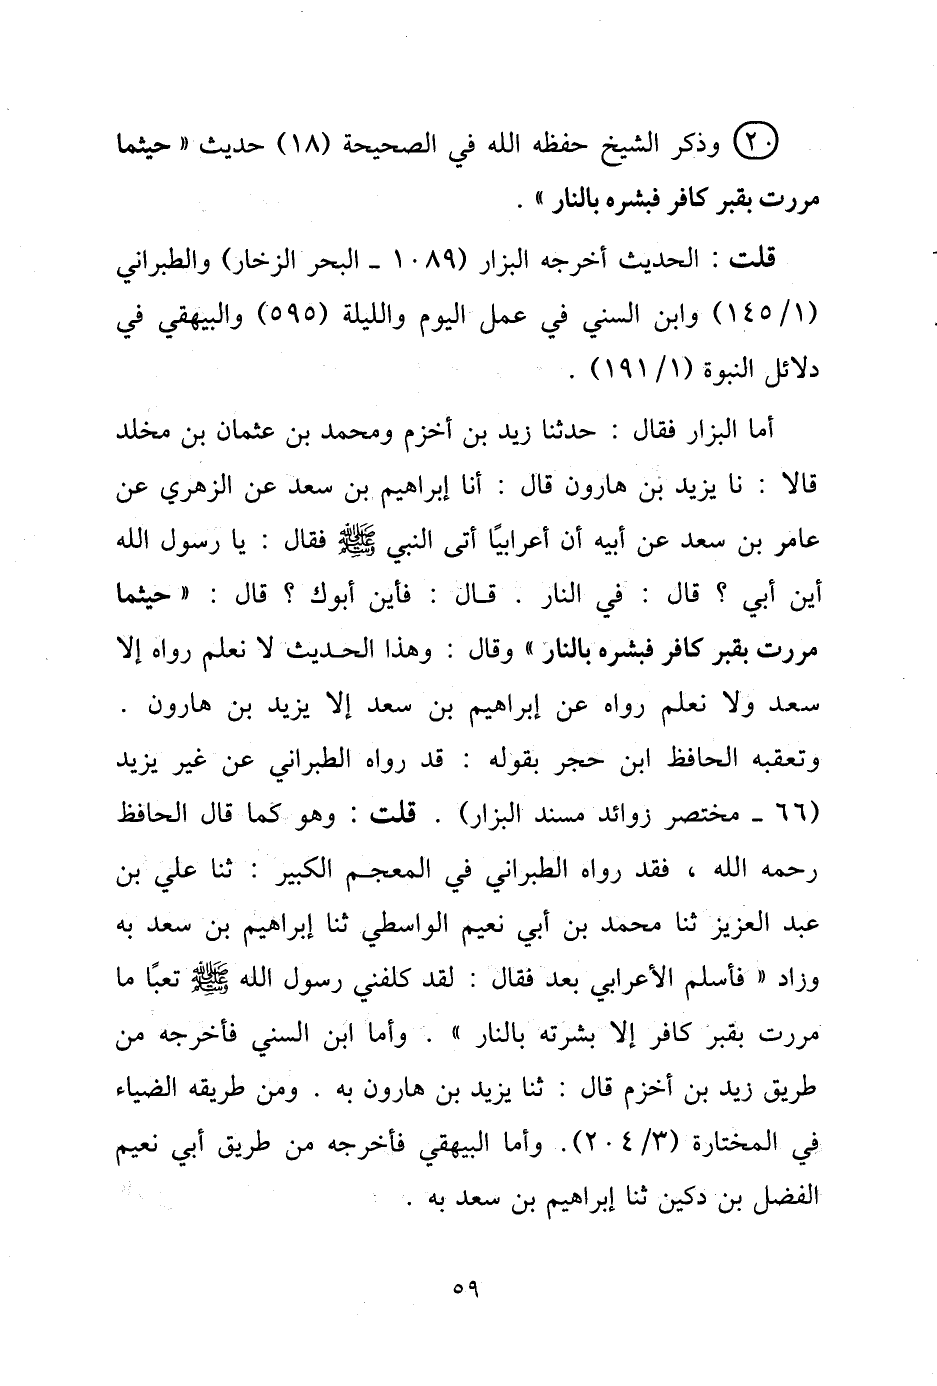 (٢٠) وذكر الشيخ حفظه الله في الصحيحة (١٨) حديث « حيثما
مررت بقبر كافر فبشره بالنار » .
قلت : الحديث أخرجه البزار (١٠٨٩ ـ البحر الزخار) والطبراني
(١/ ١٤٥) وابن السني في عمل اليوم والليلة (٥٩٥) والبيهقي في
دلائل النبوة (١/ ١٩١) .
أما البزار فقال : حدثنا زيد بن أخزم ومحمد بن عثمان بن مخلد
قالا : نا يزيد بن هارون قال : أنا إبراهيم بن سعد عن الزهري عن
عامر بن سعد عن أبيه أن أعرابيًا أتى النبي ﷺ فقال : يا رسول الله
أين أبي ؟ قال : في النار . قـال : فأين أبوك ؟ قال : « حيثما
مررت بقبر كافر فبشره بالنار » وقال : وهذا الحـديث لا نعلم رواه إلا
سعد ولا نعلم رواه عن إبراهيم بن سعد إلا يزيد بن هارون .
وتعقبه الحافظ ابن حجر بقوله : قد رواه الطبراني عن غير يزيد
(٦٦ ـ مختصر زوائد مسند البزار) . قلت : وهو كما قال الحافظ
رحمه الله ، فقد رواه الطبراني في المعجـم الكبير : ثنا علي بن
عبد العزيز ثنا محمد بن أبي نعيم الواسطي ثنا إبراهيم بن سعد به
وزاد « فأسلم الأعرابي بعد فقال : لقد كلفني رسول الله ﷺ تعبًا ما
مررت بقبر كافر إلا بشرته بالنار » . وأما ابن السني فأخرجه من
طريق زيد بن أخزم قال : ثنا يزيد بن هارون به . ومن طريقه الضياء
في المختارة (٣/ ٢٠٤). وأما البيهقي فأخرجه من طريق أبي نعيم
الفضل بن دكين ثنا إبراهيم بن سعد به .
٥٩